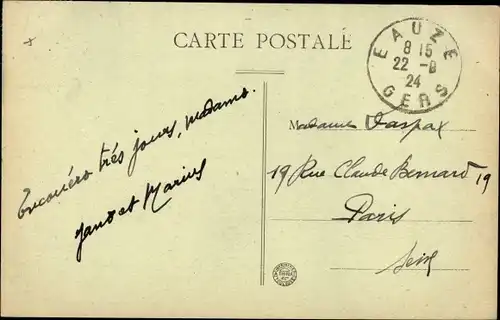 CARTE POSTALE
EAUZE
8 15
22 -8
24
GERS
Encouéro très jours, Madame.
et Marius
Madame Daspax
19 Rue Claude Bernard 19
Paris
Seine